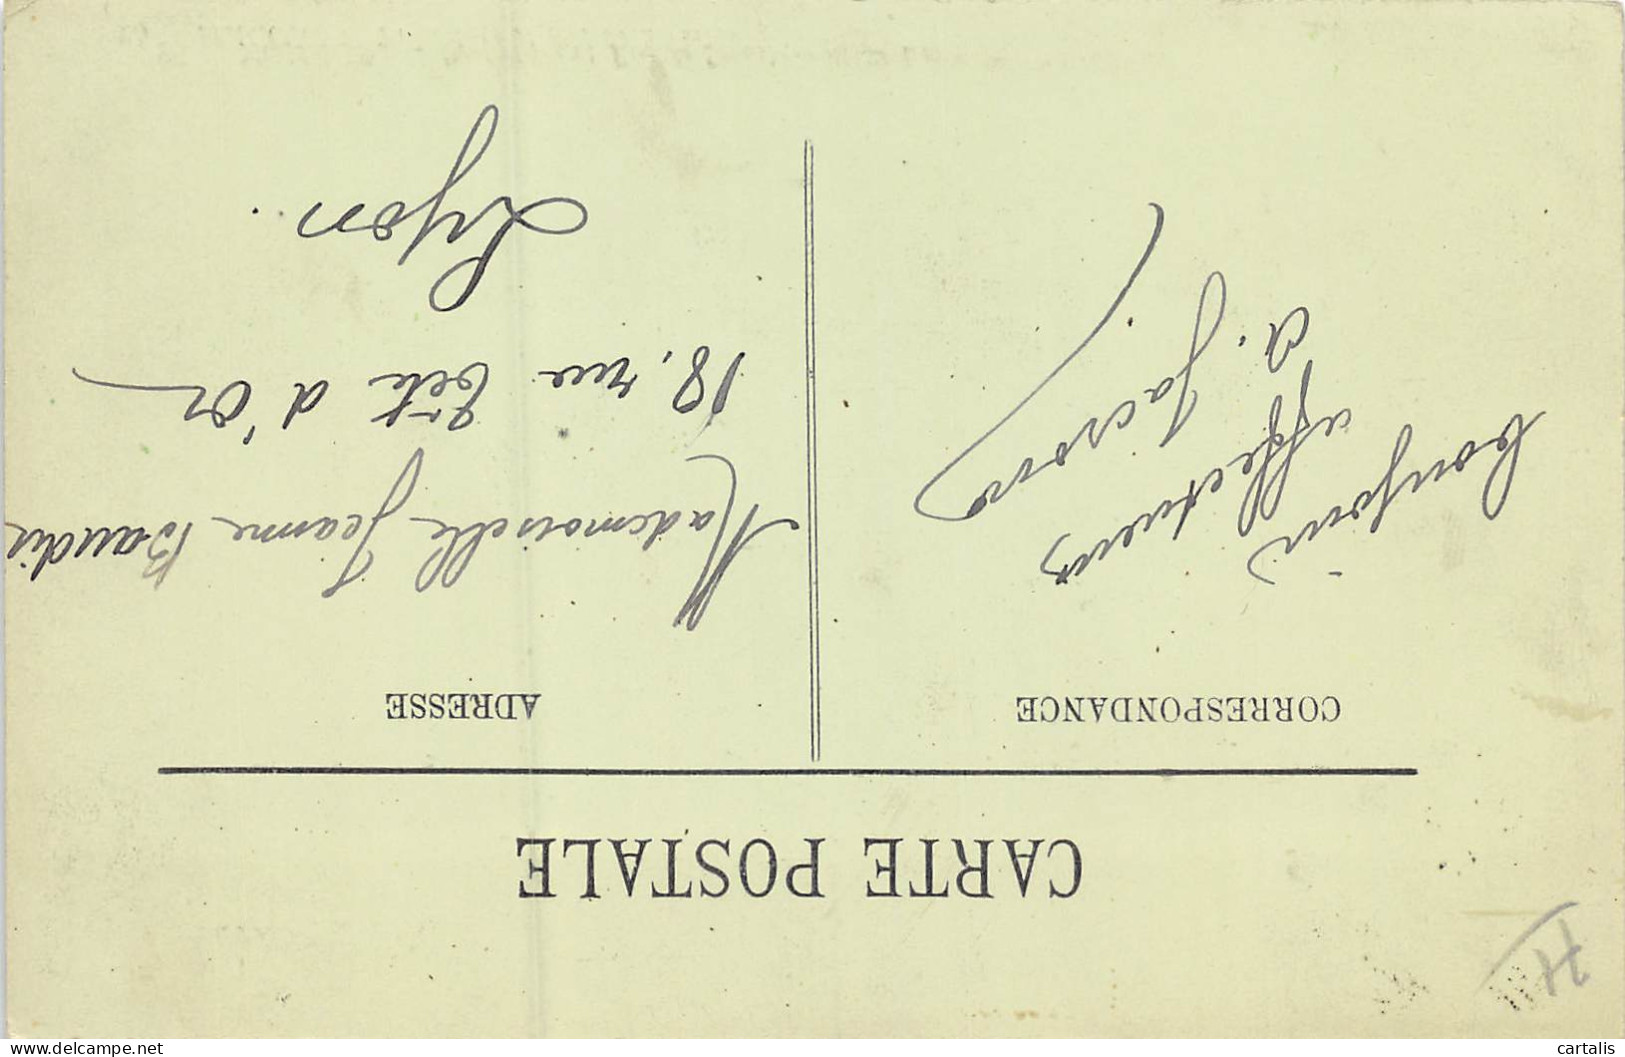 CARTE POSTALE
CORRESPONDANCE
bonjour
affectueux
a. Jacson
ADRESSE
Mademoiselle Jeanne Baudin
18, rue Tête d'Or
Lyon.
delcampe.net
cartalis